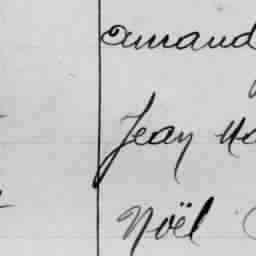 Amand
Jean
Noël